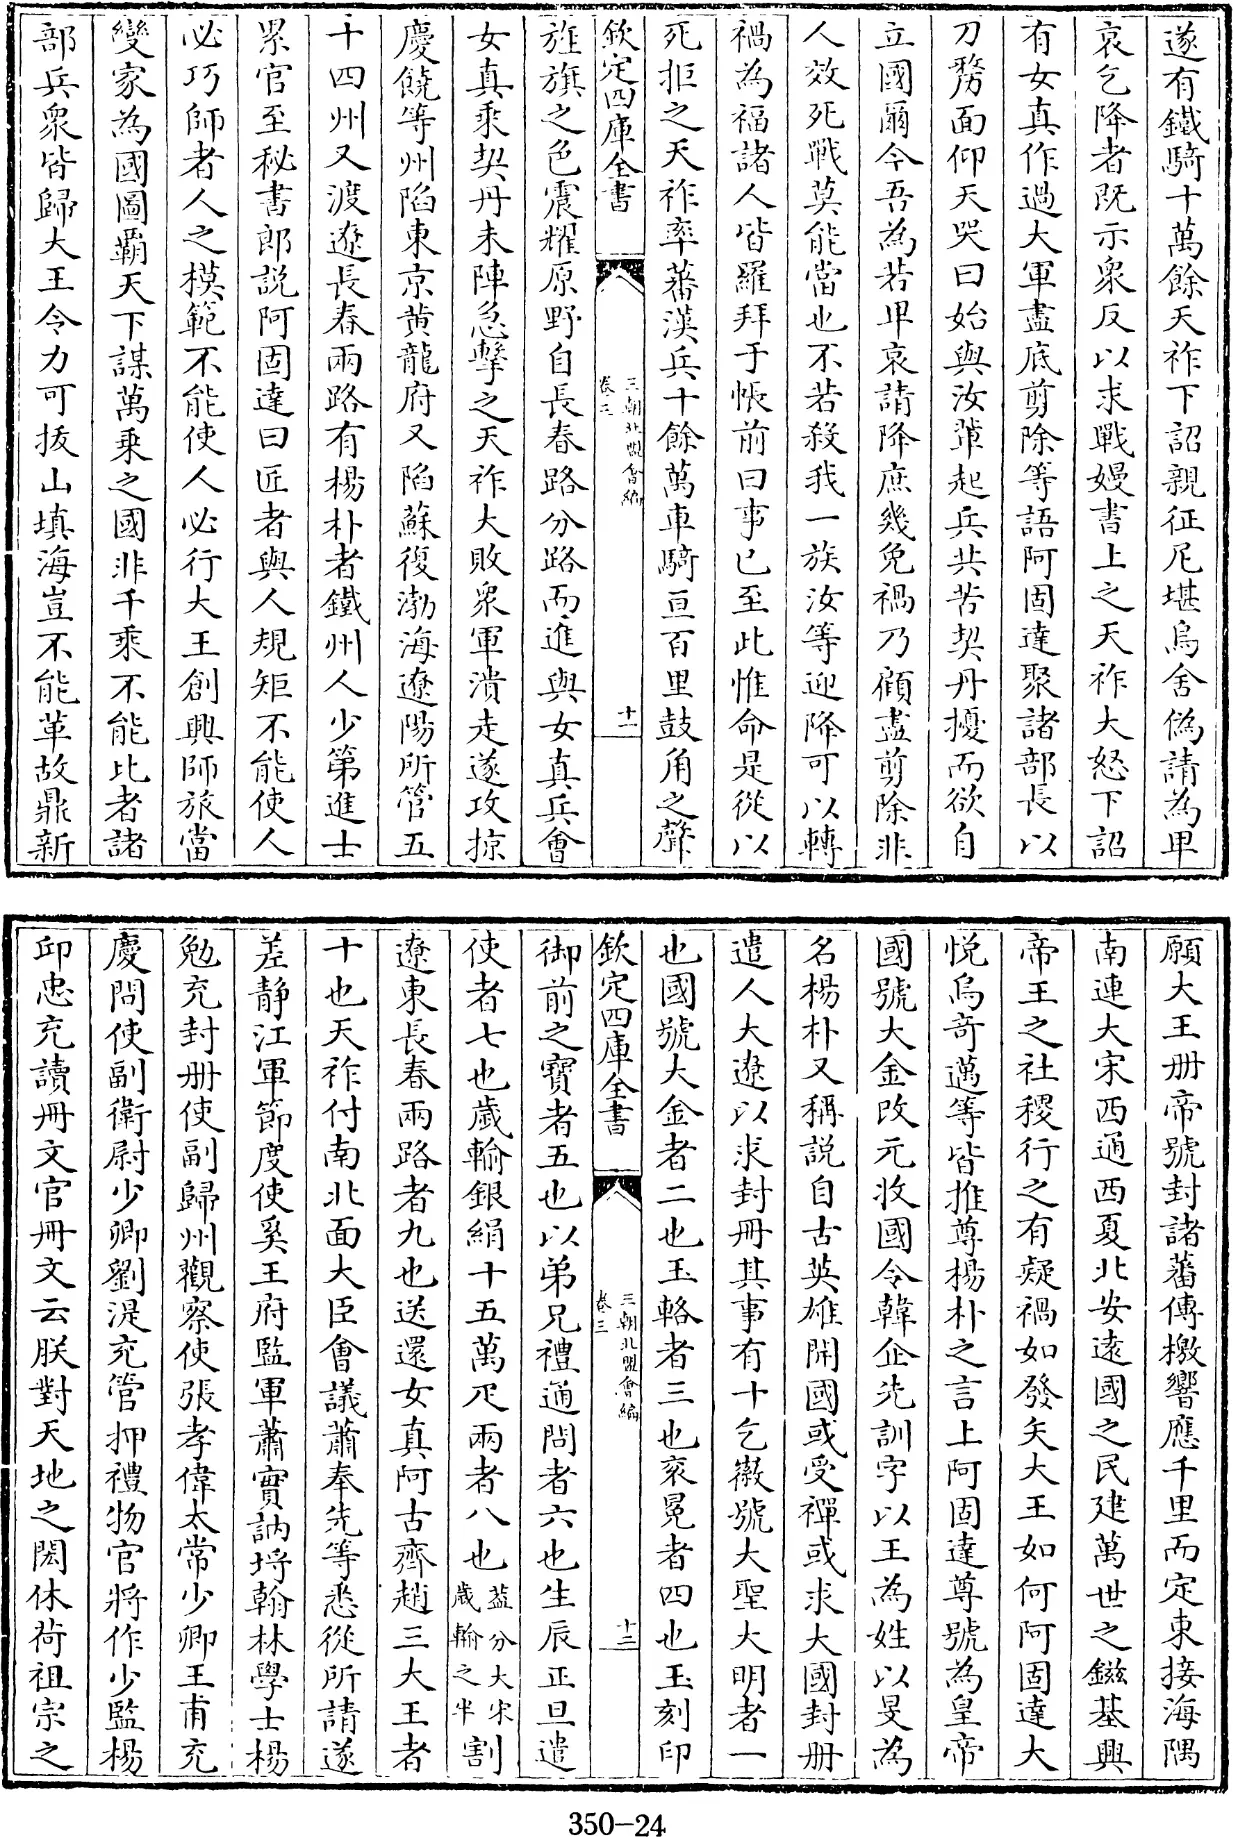 遂有鐵騎十萬餘天祚下詔親征尼堪烏舍偽請為卑
哀乞降者既示衆反以求戰嫚書上之天祚大怒下詔
有女真作過大軍盡底剪除等語阿固達聚諸部長以
刀剺面仰天哭曰始與汝輩起兵共苦契丹擾而欲自
立國爾今吾為若卑哀請降庶幾免禍乃顧盡剪除非
人效死戰莫能當也不若殺我一族汝等迎降可以轉
禍為福諸人皆羅拜于帳前曰事已至此惟命是從以
死拒之天祚率蕃漢兵十餘萬車騎亘百里鼓角之聲
欽定四庫全書
三朝北盟會編
卷三
十一
旌旗之色震耀原野自長春路分路而進與女真兵會
女真乘契丹未陣急擊之天祚大敗衆軍潰走遂攻掠
慶饒等州陷東京黄龍府又陷蘇復渤海遼陽所管五
十四州又渡遼長春兩路有楊朴者鐵州人少第進士
累官至秘書郎說阿固達曰匠者與人規矩不能使人
必巧師者人之模範不能使人必行大王創興師旅當
變家為國圖霸天下謀萬乘之國非千乘不能比者諸
部兵衆皆歸大王今力可拔山填海豈不能革故鼎新
願大王册帝號封諸蕃傳檄響應千里而定東接海隅
南連大宋西通西夏北安遠國之民建萬世之鎡基興
帝王之社稷行之有疑禍如發矢大王如何阿固達大
悅烏奇邁等皆推尊楊朴之言上阿固達尊號為皇帝
國號大金改元收國令韓企先訓字以王為姓以旻為
名楊朴又稱說自古英雄開國或受禪或求大國封册
遣人大遼以求封冊其事有十乞徽號大聖大明者一
也國號大金者二也玉輅者三也衮冕者四也玉刻印
欽定四庫全書
三朝北盟會編
卷三
十二
御前之寶者五也以弟兄禮通問者六也生辰正旦遣
使者七也歲輸銀絹十五萬疋兩者八也蓋分大宋歲輸之半割
遼東長春兩路者九也送還女真阿古齊趙三大王者
十也天祚付南北面大臣會議蕭奉先等悉從所請遂
差静江軍節度使奚王府監軍蕭實訥埒翰林學士楊
勉充封册使副歸州觀察使張孝偉太常少卿王甫充
慶問使副衛尉少卿劉湜充管押禮物官將作少監楊
邱忠充讀冊文官冊文云朕對天地之閎休荷祖宗之
350-24